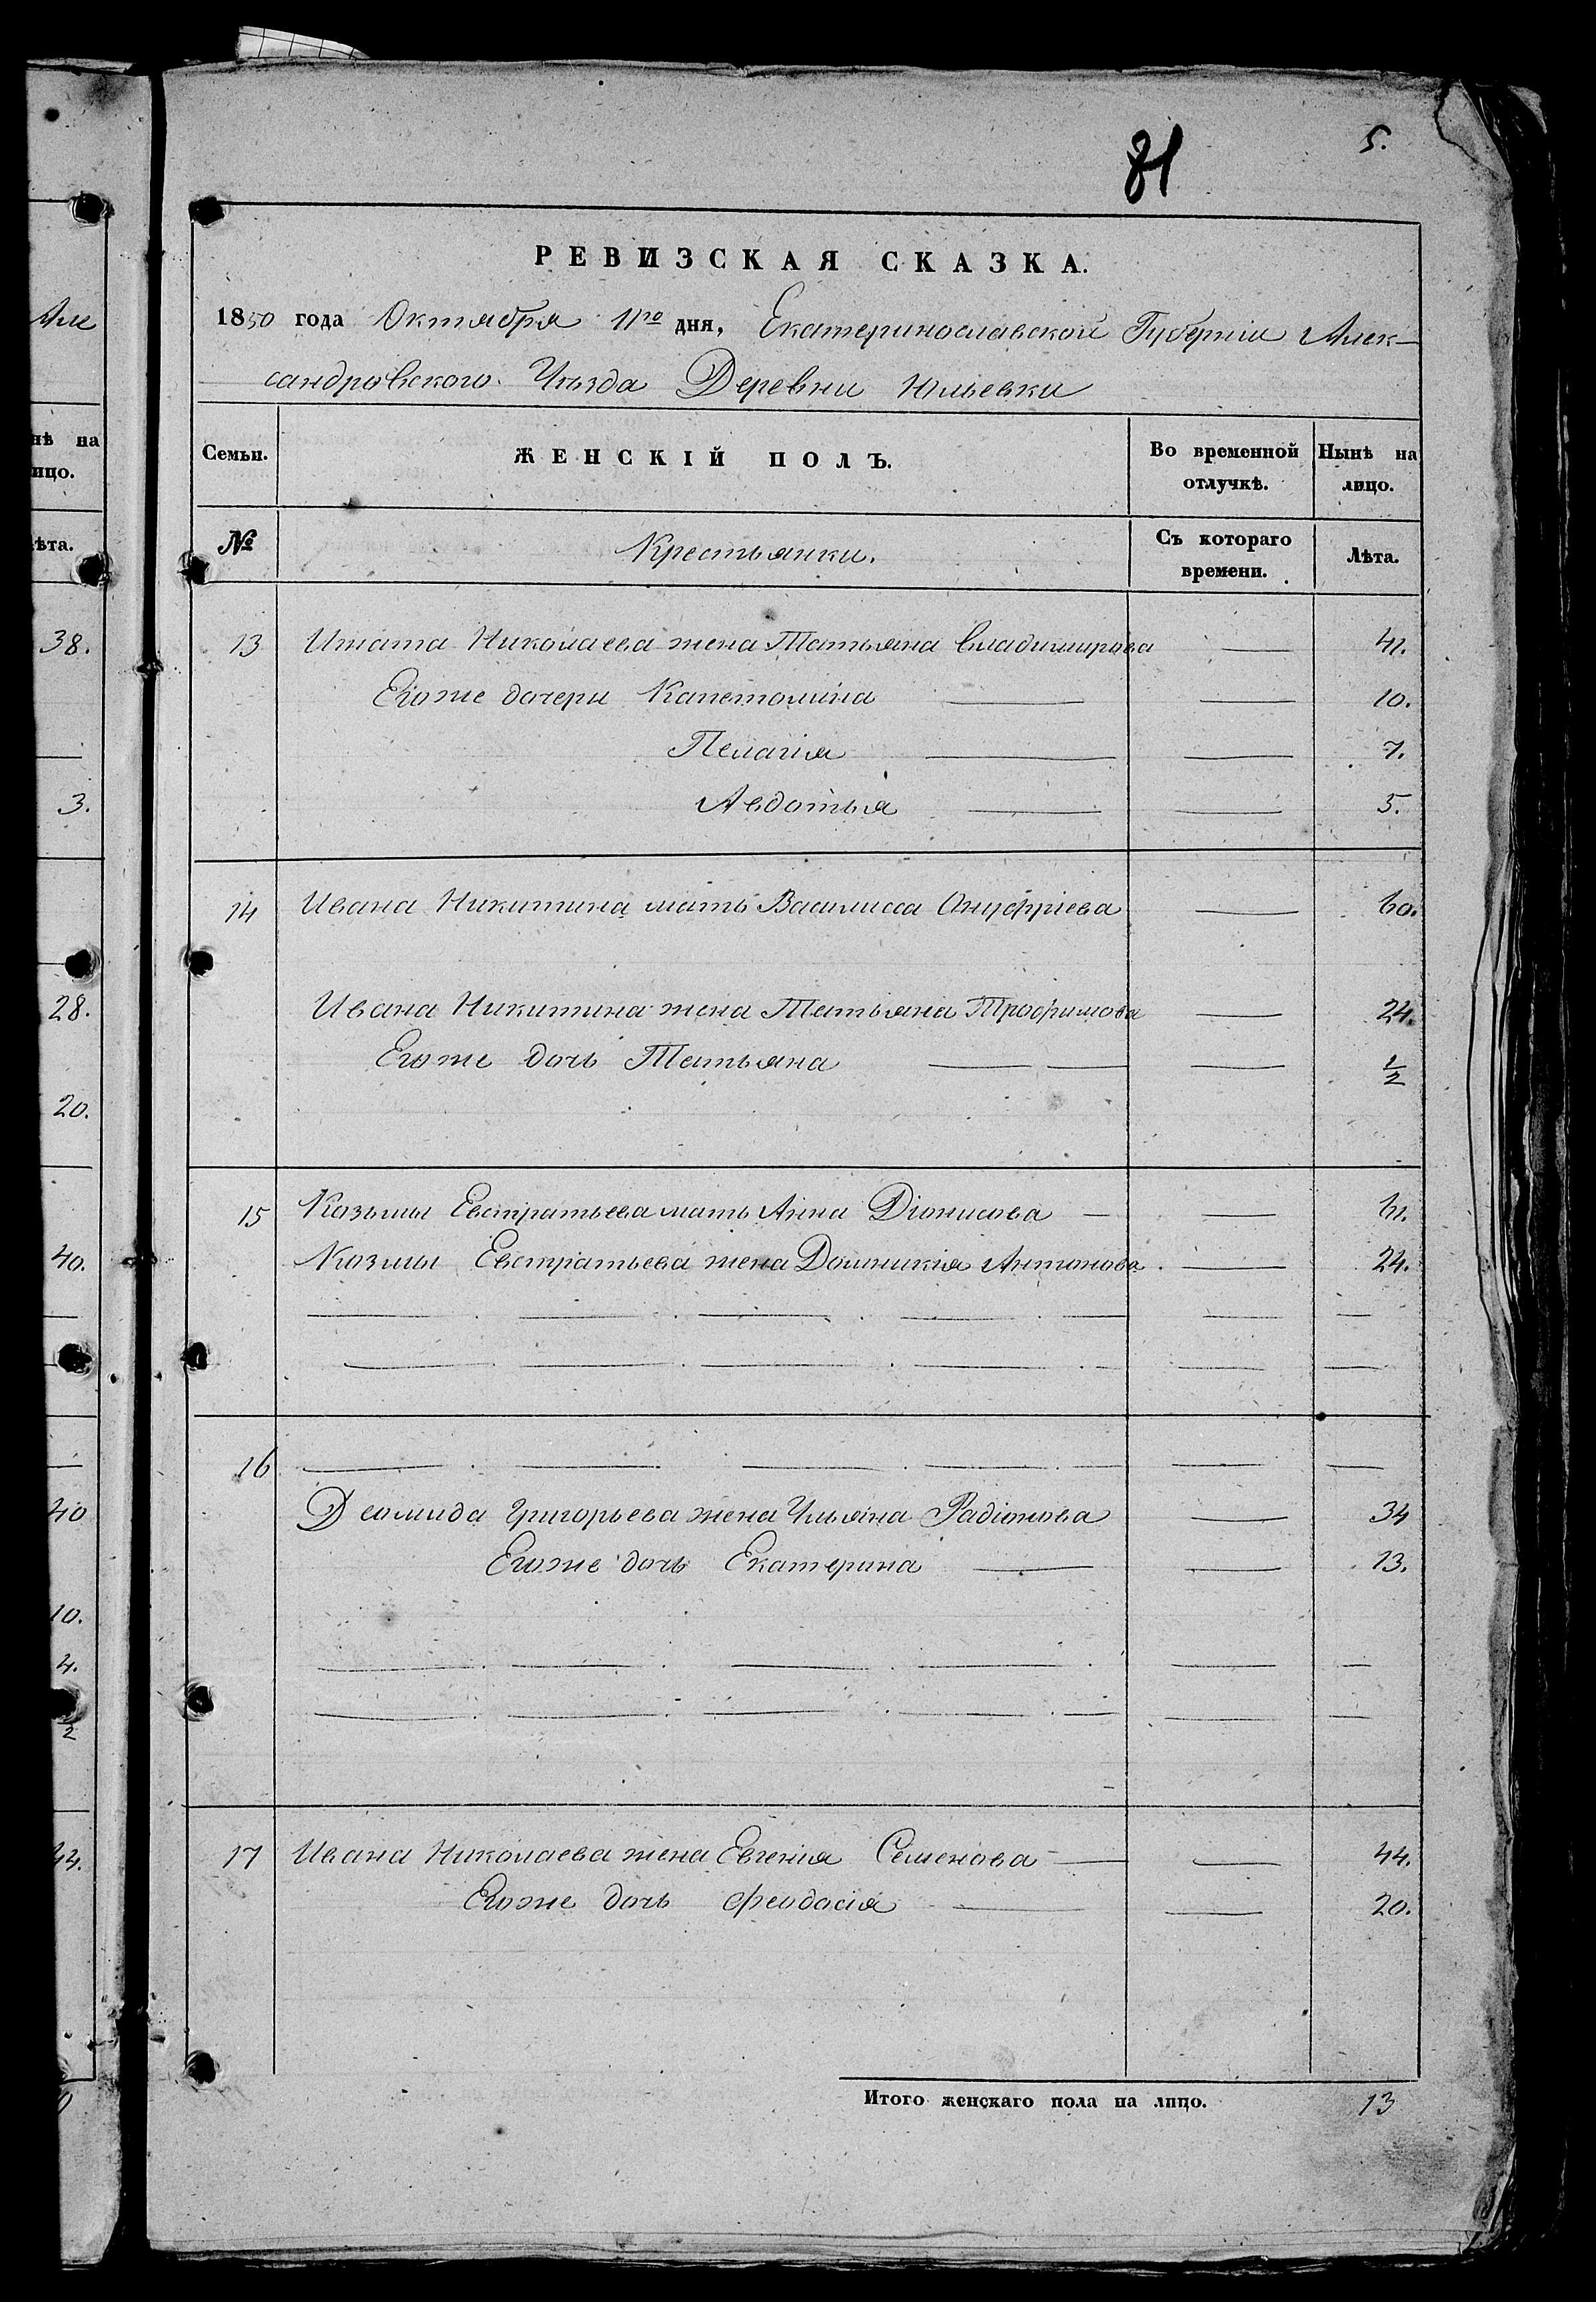 81
5.
РЕВИЗСКАЯ СКАЗКА.
1850 года Октября 11го дня, Екатеринославской Губерніи Алек-
сандровского Уѣзда Деревни Юльевки
Семьи. ЖЕНСКІЙ ПОЛЪ. Во временной отлучкѣ. Нынѣ на лицо.
№ Крестьянки. Съ котораго времени. Лѣта.
13 Игната Николаева жена Татьяна Владимирова — 41.
Его же дочери Капетолина — — 10.
Пелагія — — 7.
Авдотья — — 5.
14 Ивана Никитина мать Василисса Онуфріева — 60.
Ивана Никитина жена Татьяна Трофимова — 24.
Его же дочь Татьяна — — — 1/2
15 Козьмы Евстратьева мать Анна Діонисова — — 61.
Козмы Евстратьева жена Домникія Антонова. — 24.
16
Деомида Григорьева жена Ульяна Радіонова — 34
Его же дочь Екатерина — — 13.
17 Ивана Николаева жена Евгенія Семенова — — 44.
Его же дочь Феодосія — — 20.
Итого женскаго пола на лицо. 13
Але
нѣ на
ицо.
ѣта.
38.
3.
28.
20.
40.
40
10.
4.
2
44.